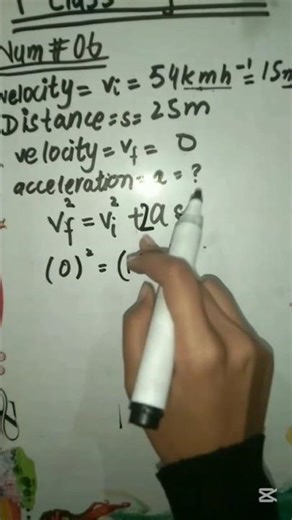 Class
Num # 06
velocity = vi = 54kmh⁻¹ = 15m
Distance = s = 25m
velocity = vf = 0
acceleration = a = ?
vf² = vi² + 2a s
(0)² = (
CapCut